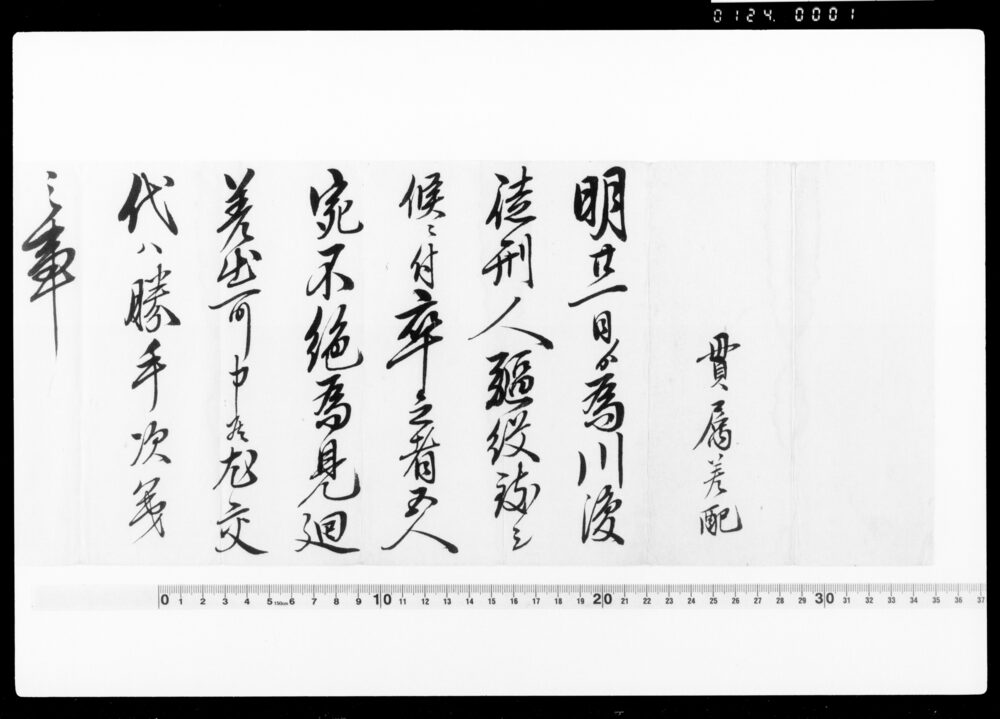 0124. 0001
貫属差配
明廿一日ゟ為川浚
徒刑人驅役致シ
候ニ付卒之者五人
宛不絶為見廻
差出可申候尤交
代ハ勝手次第
之事
0 1 2 3 4 5 150mm 6 7 8 9 10 11 12 13 14 15 16 17 18 19 20 21 22 23 24 25 26 27 28 29 30 31 32 33 34 35 36 37